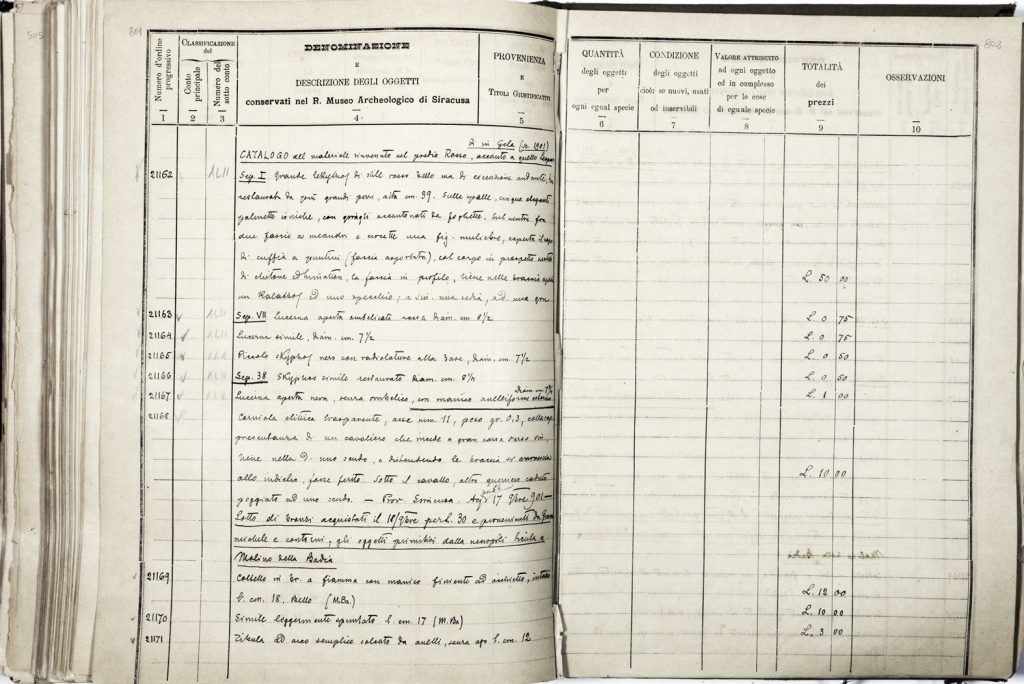 804
803
Numero d'ordine progressivo
CLASSIFICAZIONE del
Conto principale
Numero del sotto conto
DENOMINAZIONE
E
DESCRIZIONE DEGLI OGGETTI
conservati nel R. Museo Archeologico di Siracusa
PROVENIENZA
E
TITOLI GIUSTIFICATIVI
QUANTITÀ
degli oggetti
per
ogni egual specie
CONDIZIONE
degli oggetti
cioè: se nuovi, usati
od inservibili
VALORE ATTRIBUITO
ad ogni oggetto
ed in complesso
per le cose
di eguale specie
TOTALITÀ
dei
prezzi
OSSERVAZIONI
1 2 3 4 5 6 7 8 9 10
in Gela 1901)
CATALOGO del materiale rinvenuto nel predio Rosso, accanto a quello
21162 XLII Sep. I Grande lekythos di stile rosso bello ma di esecuzione andante,
restaurata da più grandi pezzi, alta cm. 39. Sulle spalle, cinque eleganti
palmette ioniche, con accantonati da fogliette. Sul ventre fra
due fascie a meandri e crocette una fig. muliebre, coperta il capo
di cuffia a puntini (faccia asportata), col corpo in prospetto
di chitone ed himation, la faccia in profilo, tiene nelle braccia
un Kalathos ed uno specchio; a sin. una sedia, ad una L. 50 00
21163 XLII Sep. VII Lucerna aperta ombelicata rossa diam. cm. 8 1/2 L. 0 75
21164 XLII Lucerna simile, diam. cm. 7 1/2 L. 0 75
21165 XLII Piccolo skyphos nero con radiolature alla base, diam. cm. 7 1/2 L. 0 50
21166 XLII Sep. 38 Skyphos simile restaurato diam. cm. 8 1/4 L. 0 50
21167 Lucerna aperta nera, senza ombelico, con manico anelliforme L. 1 00
21168 Corniola elittica trasparente, asse mm. 11, peso gr. 0,3, colla
presentanza di un cavaliero che muove a gran corsa verso sin.,
tiene nella d. uno scudo, e distendendo le braccia si
allo indietro, forse ferito. Sotto il cavallo, altro guerriero caduto L. 10 00
poggiato ad uno scudo. — Prov. Siracusa. 17 9bre 901 —
Lotto di bronzi acquistati il 18/9bre per L. 30 e provenienti da
michele e contorni, gli oggetti primitivi dalla necropoli sicula a
Molino della Badia
21169 Coltello in br. a fiamma con manico finiente ad occhietto,
l. cm. 18. Bello (M.Ba.) L. 12 00
21170 Simile leggermente spuntato l. cm. 17 (M.Ba) L. 10 00
21171 Fibula ad arco semplice colorato da anelli, senza ago l. cm. 12 L. 3 00